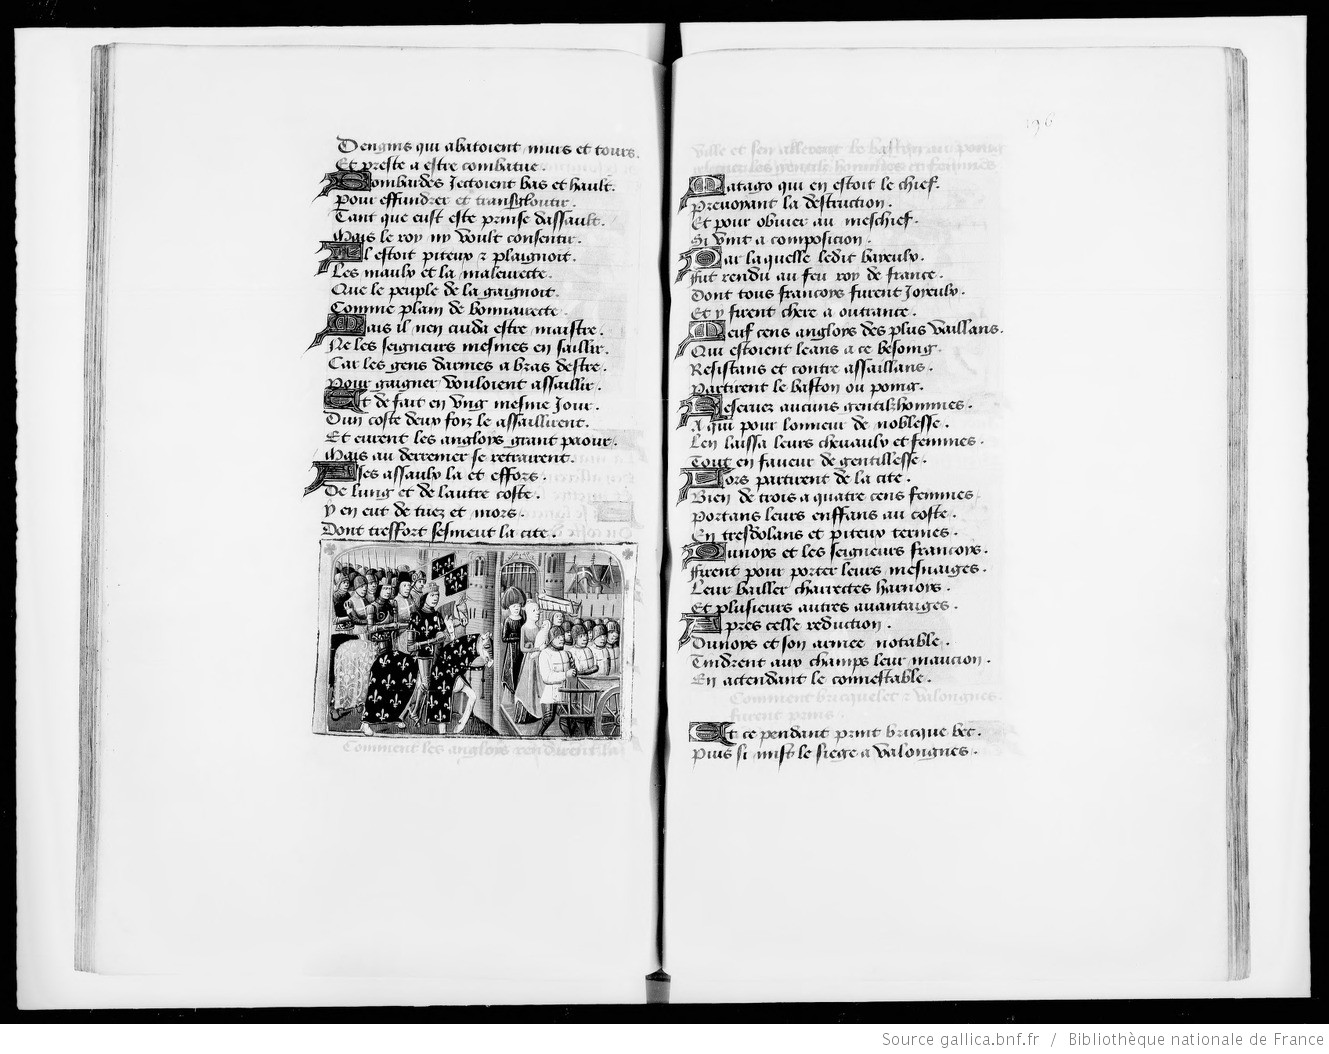 Dengins qui abatoient murs et tours.
Et preste a estre combatue.
Bombardes Jectoient bas et hault.
Pour effundrer et transgloutir.
Tant que eust este prinse dassault.
Mais le roy ny voult consentir.
Il estoit piteux ⁊ plaignoit.
Les maulx et la maleurecte.
Que le peuple de la gaignoit.
Comme plain de bonnairecte.
Mais il nen cuida estre maistre.
Ne les seigneurs mesmes en saillir.
Car les gens darmes a bras destre.
Pour gaigner vouloient assaillir.
Et de fait en vng mesme Jour.
Dun coste deux foiz le assaillirent.
Et eurent les angloys grant paour.
Mais au derrenier se retrairent.
A ses assaulx la et effors.
De lung et de lautre coste.
y en eut de tuez et mors.
Dont tresfort sesmeut la cite.
Comment les angloys rendirent la
196
ville et sen allerent le baston au poing
Matago qui en estoit le chief.
Prevoyant la destruction.
Et pour obvier au meschief.
Si vint a composition.
Par laquelle ledit bayeulx.
Fut rendu au feu roy de france.
Dont tous francoys furent Joyeulx.
Et y firent chere a oultrance.
Neuf cens angloys des plus vaillans.
Qui estoient leans a ce besoing.
Resistans et contre assaillans.
Partirent le baston ou poing.
Reseruez aucuns gentilzhommes.
A qui pour lonneur de noblesse.
Len laissa leurs cheuaulx et femmes.
Tout en faueur de gentillesse.
Lors partirent de la cite.
Bien de trois a quatre cens femmes
Portans leurs enffans au coste.
En tresdolans et piteux termes.
Dunoys et les seigneurs francoys.
Firent pour porter leurs mesnaiges.
Leur bailler charrectes harnoys.
Et plusieurs autres auantaiges.
Apres celle reduction.
Dunoys et son armee notable.
Tindrent aux champs leur mancion.
En actendant le connestable.
Comment bricquebec ⁊ valongnes.
furent prins.
Et ce pendant print bricque bec.
Puis si mist le siege a valongnes.
Source gallica.bnf.fr / Bibliothèque nationale de France